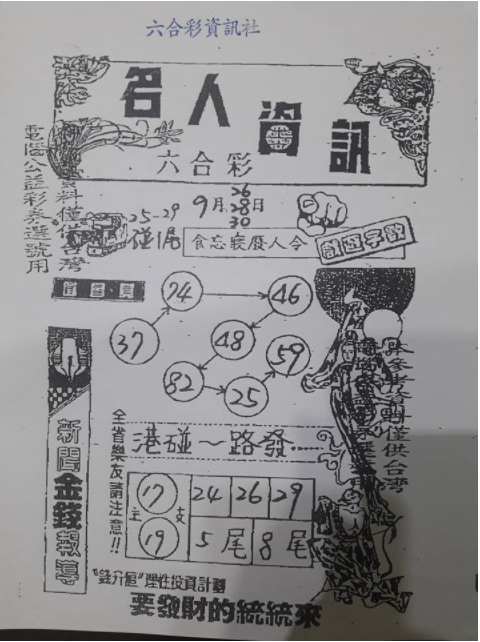 六合彩資訊社
名人資訊
六合彩
電腦公益彩券選號用
資料僅供台灣
25-29
碰1尾
9月26 28 30日
令人廢寢忘食
數字遊戲
74
46
37
48
59
82
25
新聞金錢報導
全省樂友請注意!!
港碰~路發……
17
19
主
支
24 26 29
5尾 8尾
本參考資料僅供台灣
理性投資計劃
要發財的統統來